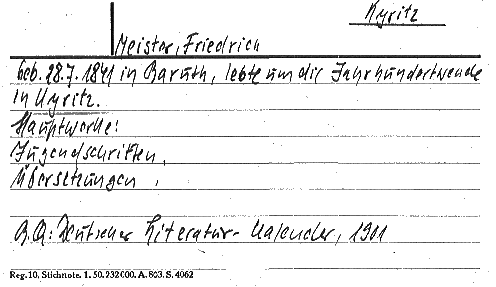 Kyritz
Meister, Friedrich
geb. 28.7.1841 in Baruth, lebte um die Jahrhundertwende
in Kyritz.
Hauptwerke:
Jugendschriften,
Übersetzungen,
B.Q: Deutscher Literatur-Kalender, 1901
Reg. 10. Stichnote. 1. 50. 232 000. A. 803. S. 4062